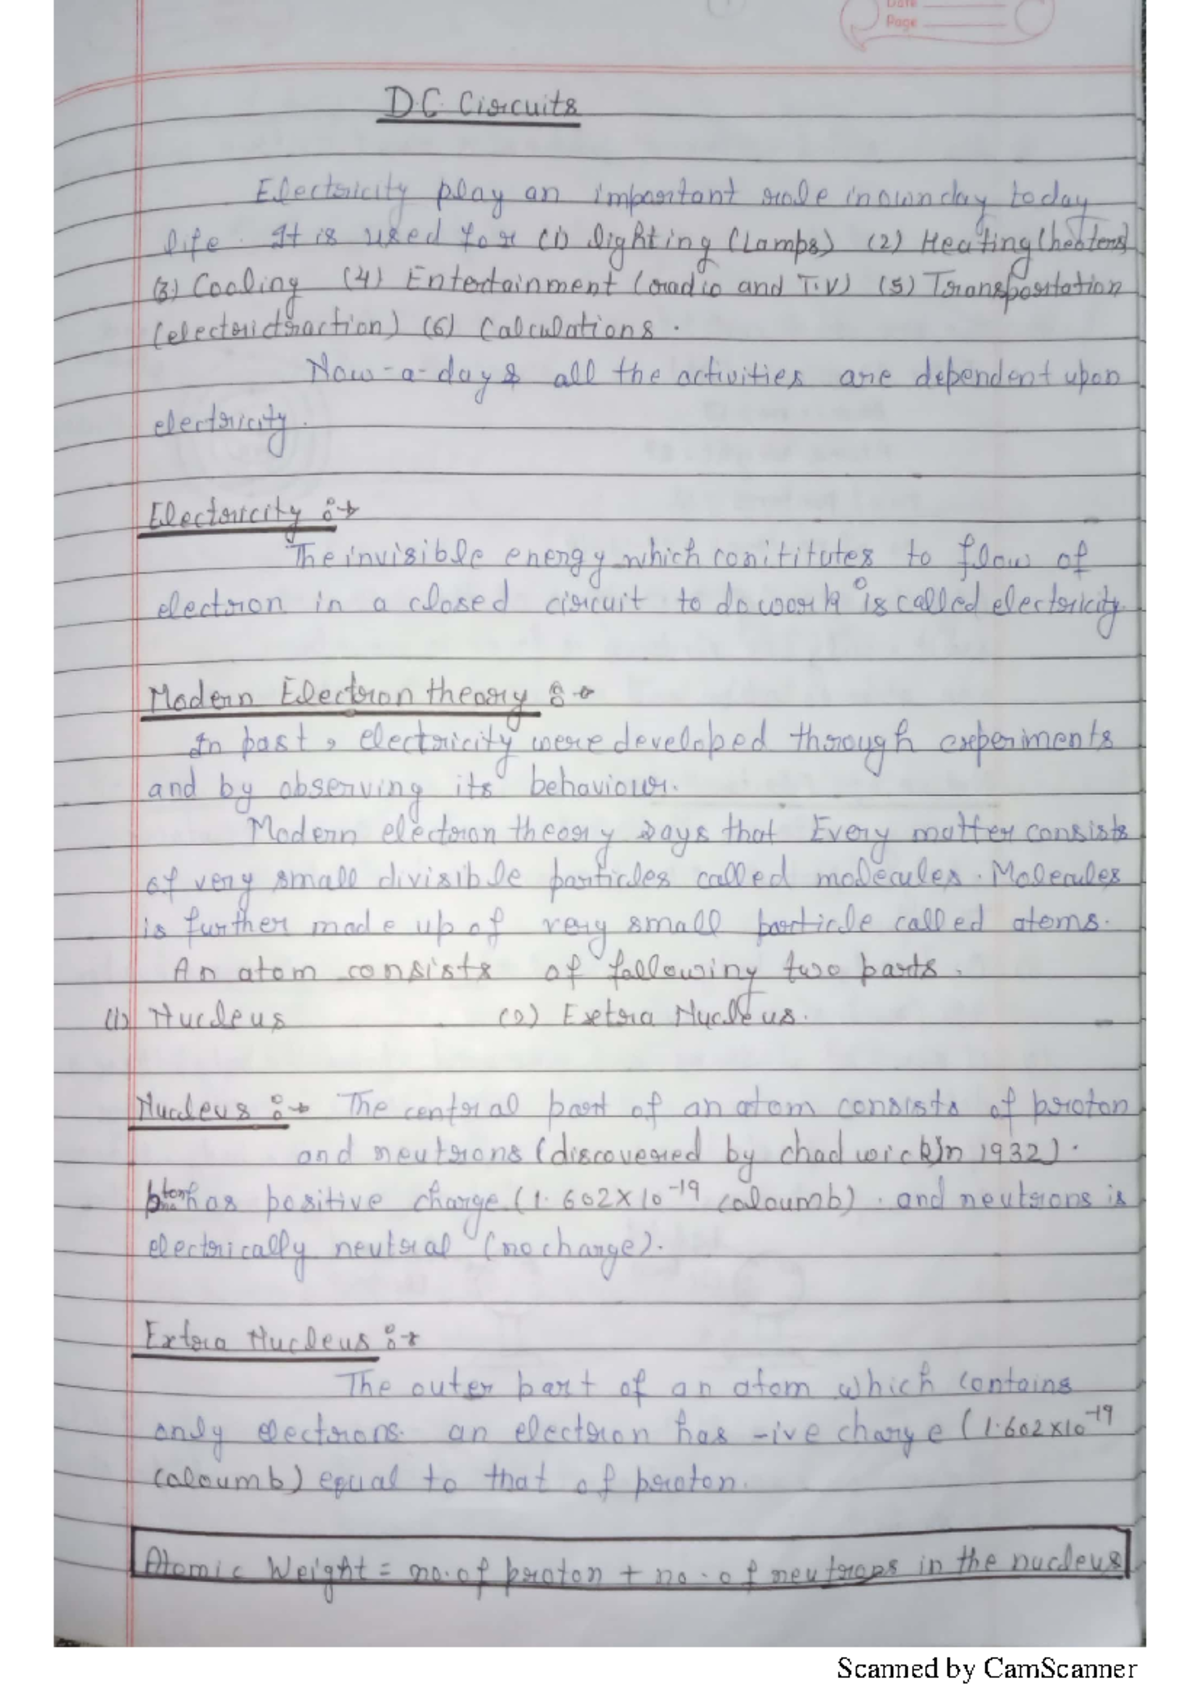 Date
Page
D.C. Circuits
Electricity play an important role in own day today
life. It is used for (1) lighting (Lamps) (2) Heating (heaters)
(3) Cooling (4) Entertainment (radio and T.V) (5) Transportation
(electrictraction) (6) Calculations.
Now-a-days all the activities are dependent upon
electricity.
Electricity :→
The invisible energy which conititutes to flow of
electron in a closed circuit to do work is called electricity
Modern Electron theory :→
In past, electricity were developed through experiments
and by observing its behaviour.
Modern electron theory says that Every matter consists
of very small divisible particles called molecules. Molecules
is further made up of very small particle called atoms.
An atom consists of following two parts.
(1) Nucleus (2) Extra Nucleus.
Nucleus :→ The central part of an atom consists of proton
and neutrons (discovered by chadwick in 1932).
has positive charge (1.602×10⁻¹⁹ coloumb). and neutrons is
electrically neutral (no charge).
Extra Nucleus :→
The outer part of an atom which contains
only electrons. an electron has -ive charge (1.602×10⁻¹⁹
coloumb) equal to that of proton.
Atomic Weight = no. of proton + no. of neutrons in the nucleus
Scanned by CamScanner